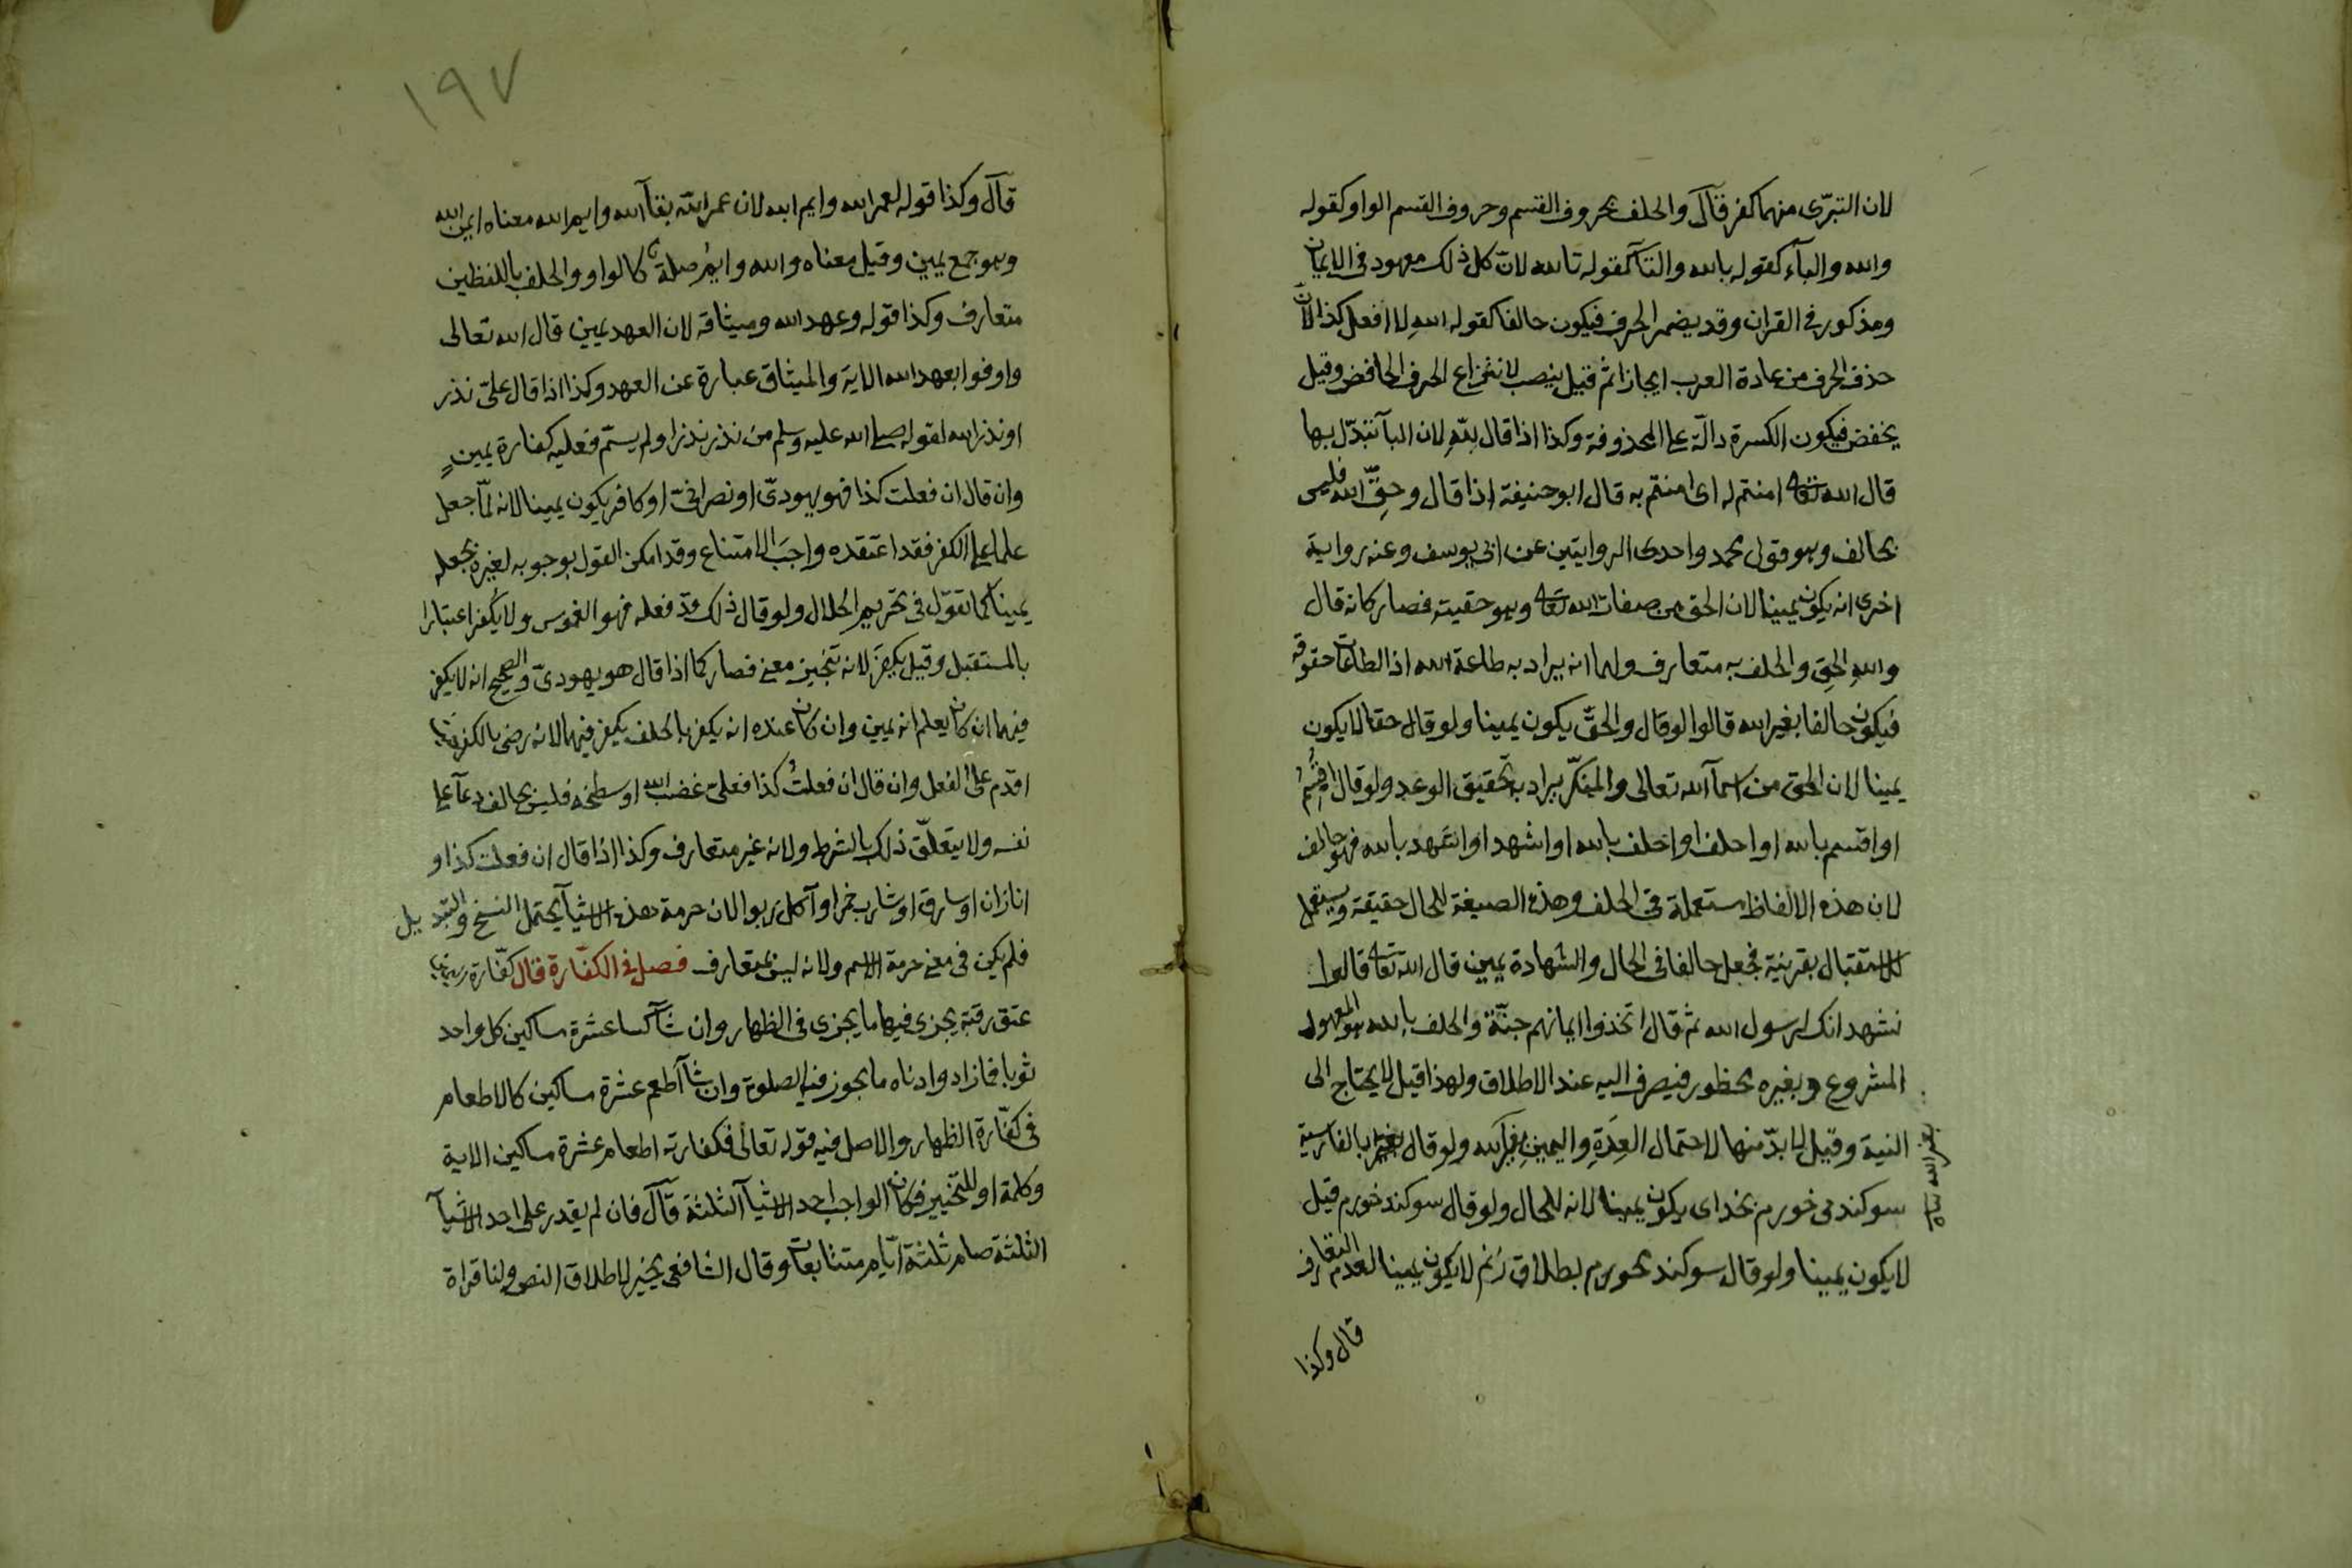 لان التبرّى منهما كفر قآل والحلف بحروف القسم وحروف القسم الواو كقوله
والله والبآء كقوله بالله والتآ كقوله تالله لانّ كل ذلك معهود فى الايمان
ومذكور فى القران وقد يضمر الحرف فيكون حالفا كقوله اللهِ لا افعل كذا لانّ
حذف الحرف من عادة العرب ايجازا ثم قيل ينصب لانتزاع الحرف الخافض وقيل
يخفض فيكون الكسرة دالّة على المحذوفة وكذا اذا قال للّهِ لان البآ تبدّل بها
قال الله تعالى امنتم له اى امنتم به قال ابو حنيفة اذا قال وحقِّ الله فليس
بحالف وهو قول محمد واحدى الروايتين عن ابى يوسف وعنه رواية
اخرى انه يكون يمينا لان الحق من صفات الله تعالى وهو حقيته فصار كانه قال
واللهِ الحقِ والحلف به متعارف ولهما انه يراد به طاعة الله اذ الطاعات حقوقه
فيكون حالفا بغير الله قالوا لو قال والحقِّ يكون يمينا ولو قال حقا لا يكون
يمينا لان الحق من اسمآ الله تعالى والمنكّر يراد به تحقيق الوعد ولو قال اُقسِمُ
او اقسم بالله او احلف او احلف بالله او اشهد او اشهد بالله فهو حالف
لان هذه الالفاظ مستعملة فى الحلف وهذه الصيغة للحال حقيقة ويستعمل
للاستقبال بقرينة فجعل حالفا فى الحال والشهادة يمين قال الله تعالى قالوا
نشهد انك لرسول الله ثم قال اتخذوا ايمانهم جنّة والحلف بالله هو المعهود
المشروع وبغيره محظور فيصرف اليه عند الاطلاق ولهذا قيل لا يحتاج الى
النية وقيل لا بدّ منها لاحتمال العِدَةِ واليمينِ بغير الله ولو قال بالفارسية
سوكند مى خورم بخداى يكون يمينا لانه للحال ولو قال سوكند خورم قيل
لا يكون يمينا ولو قال سوكند خورم بطلاق زنم لا يكون يمينا لعدم التعارف
قال وكذا
١٩٧
قآل وكذا قوله لعمر الله وايم الله لان عمر الله بقآ الله وايم الله معناه ايمن الله
وهو جمع يمين وقيل معناه والله وايمُ صلة كالواو والحلف باللفظين
متعارف وكذا قوله وعهد الله وميثاقه لان العهد يمين قال الله تعالى
واوفوا بعهد الله الاية والميثاق عبارة عن العهد وكذا اذا قال علىّ نذر
او نذر الله لقوله صلى الله عليه وسلم من نذر نذرا ولم يسمّ فعليه كفارة يمينٍ
وان قال ان فعلت كذا فهو يهودىّ او نصرانىّ او كافر يكون يمينا لانه لمّا جعل
علما على الكفر فقد اعتقده واجبَ الامتناع وقد امكن القول بوجوبه لغيره بجعله
يمينا كما تقول فى تحريم الحلال ولو قال ذلك قد فعله فهو الغموس ولا يكفر اعتبارا
بالمستقبل وقيل يكفر لانه تنجيز معنى فصار كما اذا قال هو يهودىّ والصحيح انه لا يكفر
فيهما ان كان يعلم انه يمين وان كان عنده انه يكفر بالحلف يكفر فيهما لانه رضى بالكفر حيث
اقدم على الفعل وان قال ان فعلتُ كذا فعلىّ غضب الله او سخطه فليس بحالف دعآ على
نفسه ولا يتعلّق ذلك بالشرط ولانه غير متعارف وكذا اذا قال ان فعلت كذا و
انا زان او سارق او شارب خمر او آكل ربوا لان حرمة هذه الاشيآ يحتمل النسخ والتبديل
فلم يكن فى معنى حرمة الاسم ولانه ليس بمتعارف فصل فى الكفّارة قال كفّارة اليمين
عتق رقبة يجزى فيها ما يجزى فى الظهار وان شآ كسا عشرة مساكين كل واحد
ثوبا فما زاد وادناه ما يجوز فيه الصلوة وان شآ اطعم عشرة مساكين كالاطعام
فى كفّارة الظهار والاصل فيه قوله تعالى فكفارته اطعام عشرة مساكين الاية
وكلمة او للتخيير فكان الواجب احد الاشيآ الثلثة قآل فان لم يقدر على احد الاشيآ
الثلثة صام ثلثة ايّام متتابعات وقال الشافعى يخير لاطلاق النص ولنا قراة